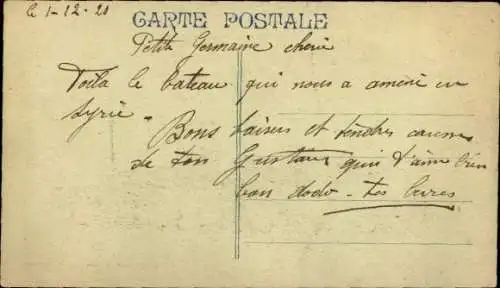 le 1-12-20
CARTE POSTALE
Petite Germaine cherie
Voila le bateau qui nous a amené en
Syrie. Bons baisers et tendres caresses
de ton Gustave qui t'aime bien
bon dodo - tes